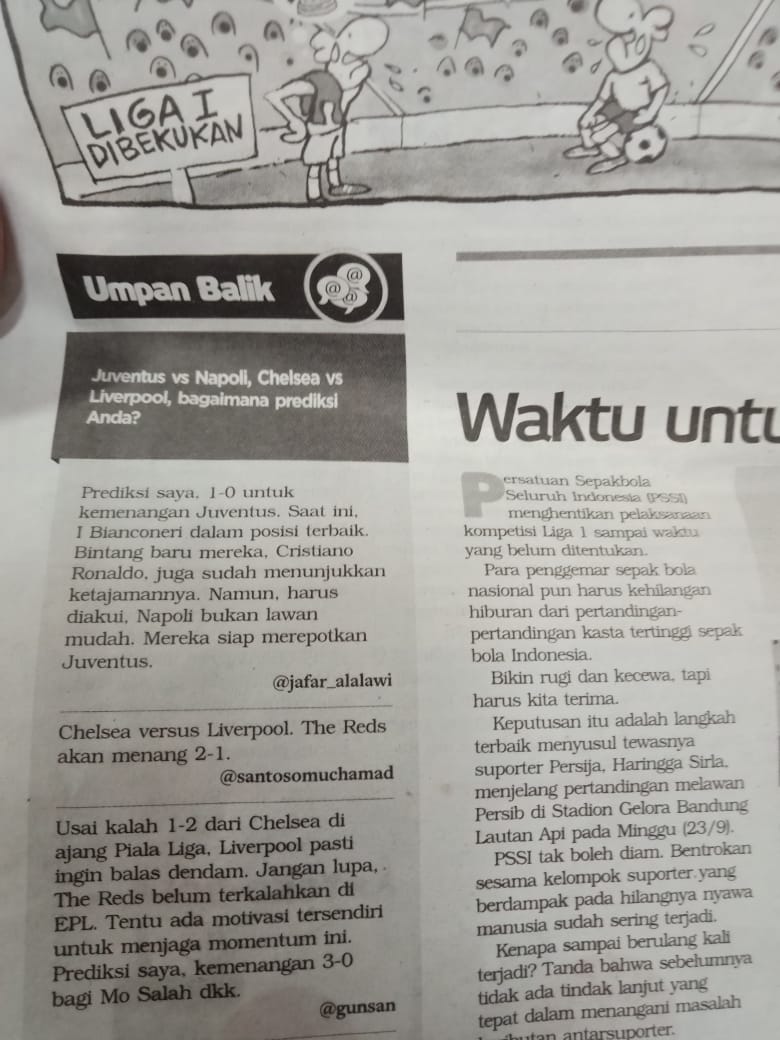 LIGA I
DIBEKUKAN
Umpan Balik
@
@
@
Juventus vs Napoli, Chelsea vs
Liverpool, bagaimana prediksi
Anda?
Prediksi saya, 1-0 untuk
kemenangan Juventus. Saat ini,
I Bianconeri dalam posisi terbaik.
Bintang baru mereka, Cristiano
Ronaldo, juga sudah menunjukkan
ketajamannya. Namun, harus
diakui, Napoli bukan lawan
mudah. Mereka siap merepotkan
Juventus.
@jafar_alalawi
Chelsea versus Liverpool. The Reds
akan menang 2-1.
@santosomuchamad
Usai kalah 1-2 dari Chelsea di
ajang Piala Liga, Liverpool pasti
ingin balas dendam. Jangan lupa,
The Reds belum terkalahkan di
EPL. Tentu ada motivasi tersendiri
untuk menjaga momentum ini.
Prediksi saya, kemenangan 3-0
bagi Mo Salah dkk.
@gunsan
Waktu untu
Persatuan Sepakbola
Seluruh Indonesia (PSSI)
menghentikan pelaksanaan
kompetisi Liga 1 sampai waktu
yang belum ditentukan.
Para penggemar sepak bola
nasional pun harus kehilangan
hiburan dari pertandingan-
pertandingan kasta tertinggi sepak
bola Indonesia.
Bikin rugi dan kecewa, tapi
harus kita terima.
Keputusan itu adalah langkah
terbaik menyusul tewasnya
suporter Persija, Haringga Sirla,
menjelang pertandingan melawan
Persib di Stadion Gelora Bandung
Lautan Api pada Minggu (23/9).
PSSI tak boleh diam. Bentrokan
sesama kelompok suporter yang
berdampak pada hilangnya nyawa
manusia sudah sering terjadi.
Kenapa sampai berulang kali
terjadi? Tanda bahwa sebelumnya
tidak ada tindak lanjut yang
tepat dalam menangani masalah
antarsuporter.